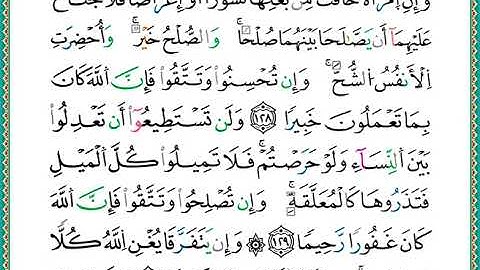 وَإِنِ ٱمْرَأَةٌ خَافَتْ مِنۢ بَعْلِهَا نُشُوزًا أَوْ إِعْرَاضًا فَلَا جُنَاحَ
عَلَيْهِمَآ أَن يَصَّـٰلَحَا بَيْنَهُمَا صُلْحًا ۚ وَٱلصُّلْحُ خَيْرٌ ۗ وَأُحْضِرَتِ
ٱلْأَنفُسُ ٱلشُّحَّ ۚ وَإِن تُحْسِنُوا۟ وَتَتَّقُوا۟ فَإِنَّ ٱللَّهَ كَانَ
بِمَا تَعْمَلُونَ خَبِيرًا ١٢٨ وَلَن تَسْتَطِيعُوٓا۟ أَن تَعْدِلُوا۟
بَيْنَ ٱلنِّسَآءِ وَلَوْ حَرَصْتُمْ ۖ فَلَا تَمِيلُوا۟ كُلَّ ٱلْمَيْلِ
فَتَذَرُوهَا كَٱلْمُعَلَّقَةِ ۚ وَإِن تُصْلِحُوا۟ وَتَتَّقُوا۟ فَإِنَّ ٱللَّهَ
كَانَ غَفُورًا رَّحِيمًا ١٢٩ ۞ وَإِن يَتَفَرَّقَا يُغْنِ ٱللَّهُ كُلًّا